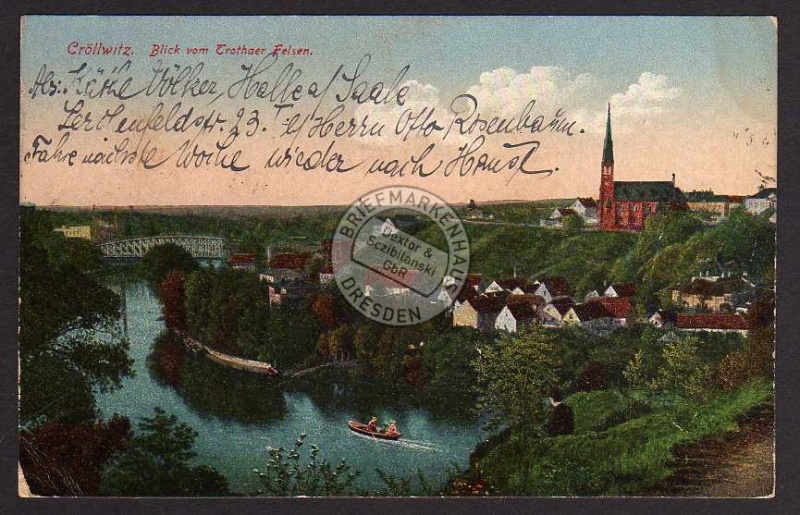 Cröllwitz. Blick vom Trothaer Felsen.
Abs: Käthe Völker, Halle a/Saale
Lerchenfeldstr. 23. I e/Herrn Otto Rosenbaum.
Fahre nächste Woche wieder nach Hanst.
BRIEFMARKENHAUS
Dextor &
Sczibilanski
GbR
DRESDEN